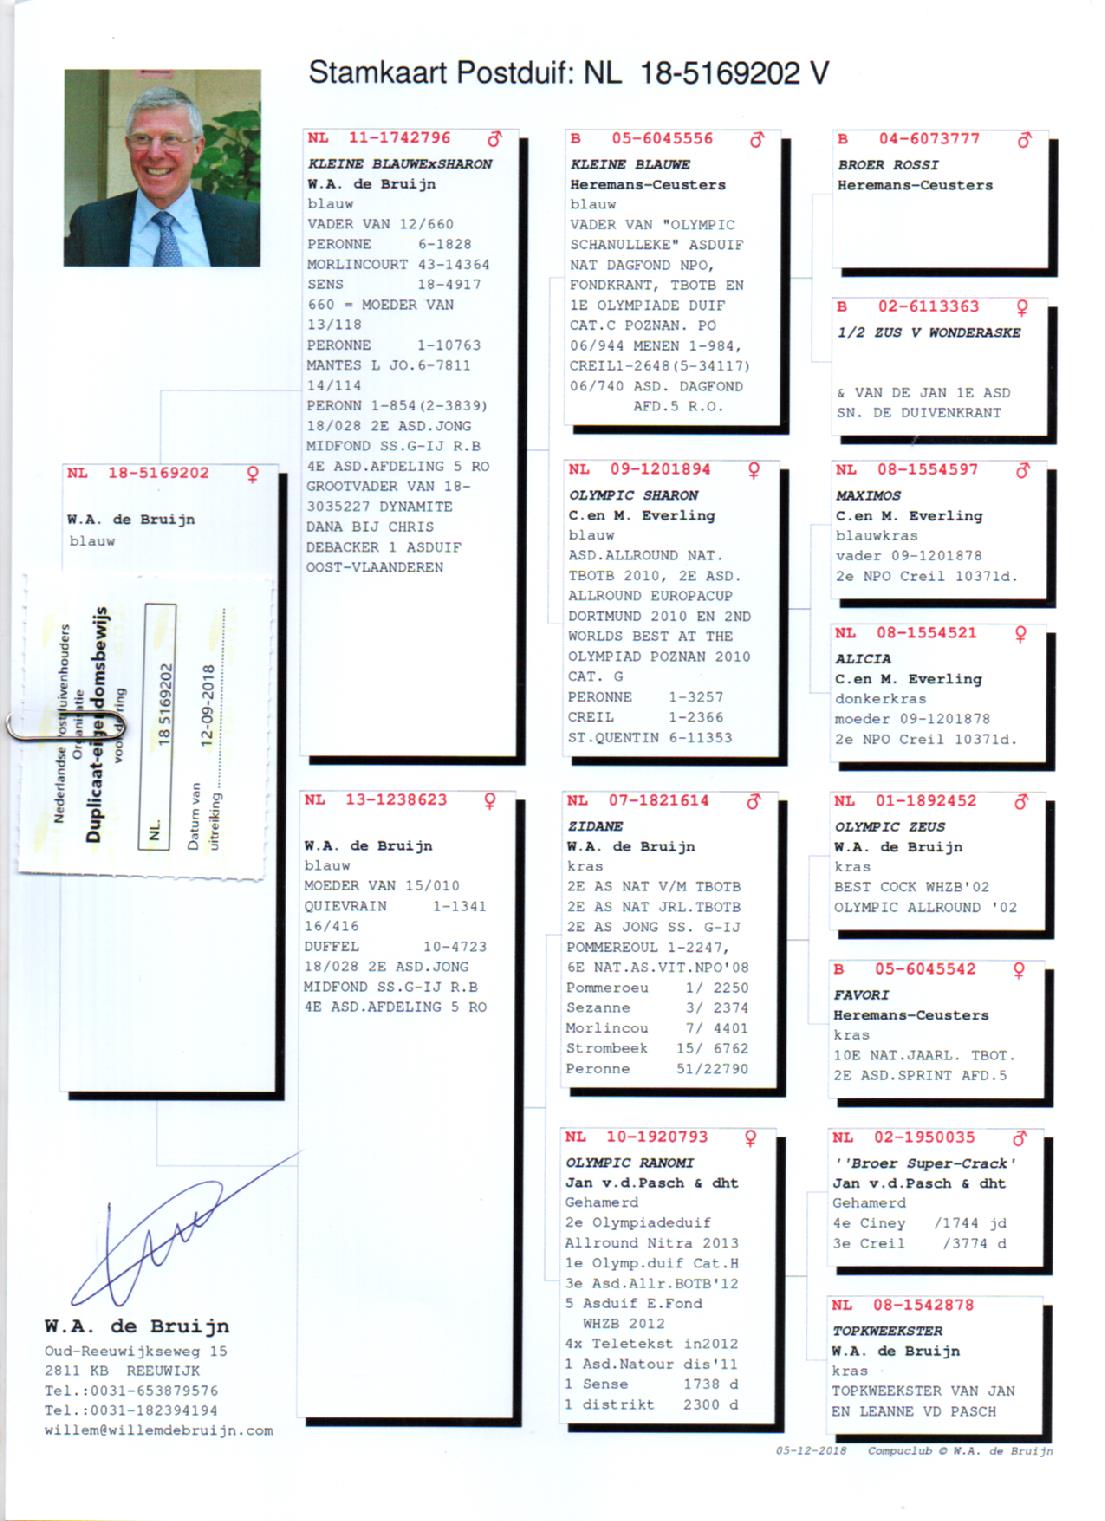 Stamkaart Postduif: NL 18-5169202 V
NL 18-5169202 ♀
W.A. de Bruijn
blauw
Nederlandse Postduivenhouders
Organisatie
Duplicaat-eigendomsbewijs
voor de ring
NL. 18 5169202
Datum van
uitreiking 12-09-2018
W.A. de Bruijn
Oud-Reeuwijkseweg 15
2811 KB REEUWIJK
Tel.:0031-653879576
Tel.:0031-182394194
willem@willemdebruijn.com
NL 11-1742796 ♂
KLEINE BLAUWExSHARON
W.A. de Bruijn
blauw
VADER VAN 12/660
PERONNE 6-1828
MORLINCOURT 43-14364
SENS 18-4917
660 = MOEDER VAN
13/118
PERONNE 1-10763
MANTES L JO.6-7811
14/114
PERONN 1-854(2-3839)
18/028 2E ASD.JONG
MIDFOND SS.G-IJ R.B
4E ASD.AFDELING 5 RO
GROOTVADER VAN 18-
3035227 DYNAMITE
DANA BIJ CHRIS
DEBACKER 1 ASDUIF
OOST-VLAANDEREN
NL 13-1238623 ♀
W.A. de Bruijn
blauw
MOEDER VAN 15/010
QUIEVRAIN 1-1341
16/416
DUFFEL 10-4723
18/028 2E ASD.JONG
MIDFOND SS.G-IJ R.B
4E ASD.AFDELING 5 RO
B 05-6045556 ♂
KLEINE BLAUWE
Heremans-Ceusters
blauw
VADER VAN "OLYMPIC
SCHANULLEKE" ASDUIF
NAT DAGFOND NPO,
FONDKRANT, TBOTB EN
1E OLYMPIADE DUIF
CAT.C POZNAN. PO
06/944 MENEN 1-984,
CREIL1-2648(5-34117)
06/740 ASD. DAGFOND
AFD.5 R.O.
NL 09-1201894 ♀
OLYMPIC SHARON
C.en M. Everling
blauw
ASD.ALLROUND NAT.
TBOTB 2010, 2E ASD.
ALLROUND EUROPACUP
DORTMUND 2010 EN 2ND
WORLDS BEST AT THE
OLYMPIAD POZNAN 2010
CAT. G
PERONNE 1-3257
CREIL 1-2366
ST.QUENTIN 6-11353
NL 07-1821614 ♂
ZIDANE
W.A. de Bruijn
kras
2E AS NAT V/M TBOTB
2E AS NAT JRL.TBOTB
2E AS JONG SS. G-IJ
POMMEREOUL 1-2247,
6E NAT.AS.VIT.NPO'08
Pommeroeu 1/ 2250
Sezanne 3/ 2374
Morlincou 7/ 4401
Strombeek 15/ 6762
Peronne 51/22790
NL 10-1920793 ♀
OLYMPIC RANOMI
Jan v.d.Pasch & dht
Gehamerd
2e Olympiadeduif
Allround Nitra 2013
1e Olymp.duif Cat.H
3e Asd.Allr.BOTB'12
5 Asduif E.Fond
WHZB 2012
4x Teletekst in2012
1 Asd.Natour dis'11
1 Sense 1738 d
1 distrikt 2300 d
B 04-6073777 ♂
BROER ROSSI
Heremans-Ceusters
B 02-6113363 ♀
1/2 ZUS V WONDERASKE
& VAN DE JAN 1E ASD
SN. DE DUIVENKRANT
NL 08-1554597 ♂
MAXIMOS
C.en M. Everling
blauwkras
vader 09-1201878
2e NPO Creil 10371d.
NL 08-1554521 ♀
ALICIA
C.en M. Everling
donkerkras
moeder 09-1201878
2e NPO Creil 10371d.
NL 01-1892452 ♂
OLYMPIC ZEUS
W.A. de Bruijn
kras
BEST COCK WHZB'02
OLYMPIC ALLROUND '02
B 05-6045542 ♀
FAVORI
Heremans-Ceusters
kras
10E NAT.JAARL. TBOT.
2E ASD.SPRINT AFD.5
NL 02-1950035 ♂
''Broer Super-Crack'
Jan v.d.Pasch & dht
Gehamerd
4e Ciney /1744 jd
3e Creil /3774 d
NL 08-1542878 ♀
TOPKWEEKSTER
W.A. de Bruijn
kras
TOPKWEEKSTER VAN JAN
EN LEANNE VD PASCH
05-12-2018 Compuclub © W.A. de Bruijn